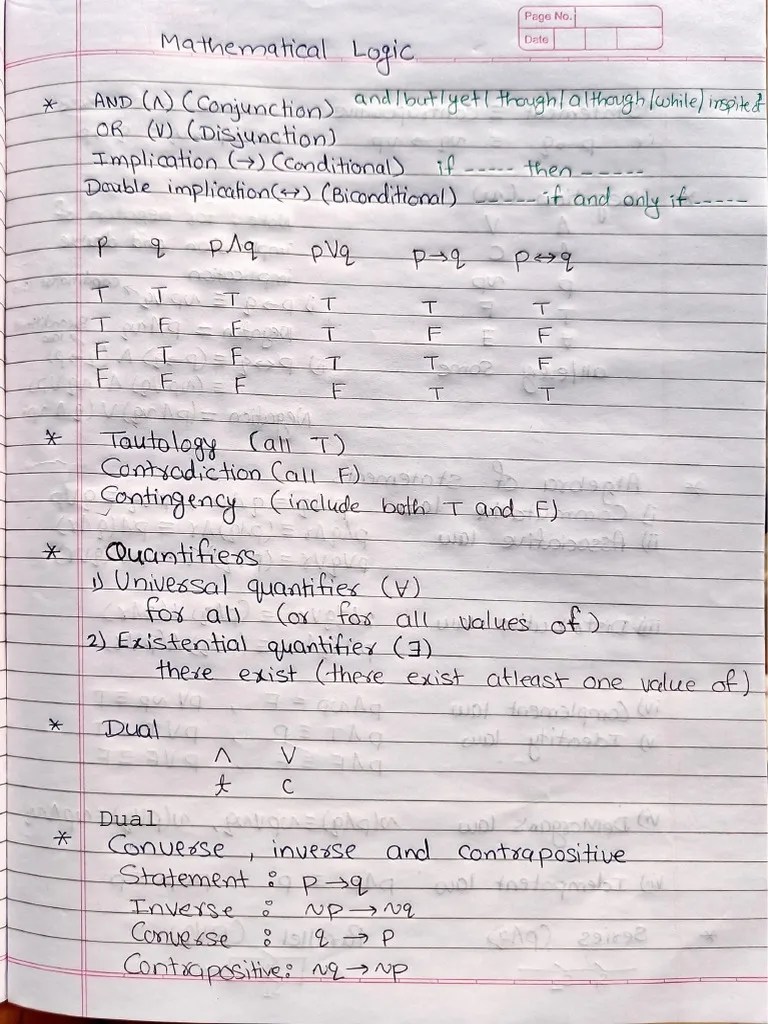 Page No.
Date
Mathematical Logic
* AND (∧) (Conjunction) and/but/yet/though/although/while/inspite of
OR (∨) (Disjunction)
Implication (→) (Conditional) if ----- then -----
Double implication(↔) (Biconditional) ----- if and only if -----
p q p∧q p∨q p→q p↔q
T T T T T T
T F F T F F
F T F T T F
F F F F T T
* Tautology (all T)
Contradiction (all F)
Contingency (include both T and F)
* Quantifiers
1) Universal quantifier (∀)
for all (or for all values of)
2) Existential quantifier (∃)
there exist (there exist atleast one value of)
* Dual
∧ ∨
t c
Dual
* Converse, inverse and contrapositive
Statement : p→q
Inverse : ~p→~q
Converse : q → p
Contrapositive: ~q→~p